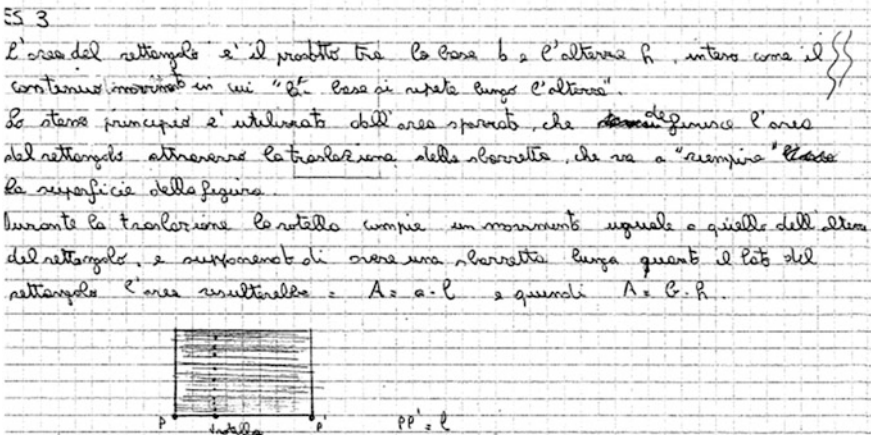 ES 3
L'area del rettangolo e' il prodotto tra la base b e l'altezza h, inteso come il
continuo movimento in cui "la base si ripete lungo l'altezza".
Lo stesso principio e' utilizzato dall'area spazzata, che definisce l'area
del rettangolo attraverso la traslazione della sbarretta, che va a "riempire"
la superficie della figura.
Durante la traslazione la rotella compie un movimento uguale a quello dell'altezza
del rettangolo, e supponendo di avere una sbarretta lunga quanto il lato del
rettangolo l'area risulterebbe = A = a · l e quindi A = b · h.
P rotella P' PP' = l